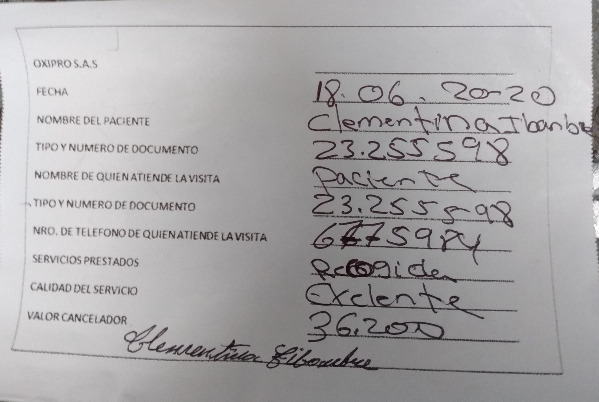 OXIPRO S.A.S
FECHA 18.06.2020
NOMBRE DEL PACIENTE Clementina
TIPO Y NUMERO DE DOCUMENTO 23.255598
NOMBRE DE QUIEN ATIENDE LA VISITA paciente
TIPO Y NUMERO DE DOCUMENTO 23.255598
NRO. DE TELEFONO DE QUIEN ATIENDE LA VISITA
SERVICIOS PRESTADOS Recogida
CALIDAD DEL SERVICIO Exelente
VALOR CANCELADOR 36.200
Clementina